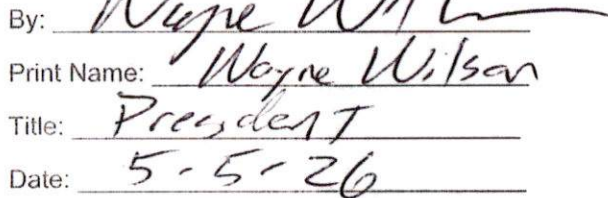 By: Wayne Wil
Print Name: Wayne Wilson
Title: President
Date: 5-5-26